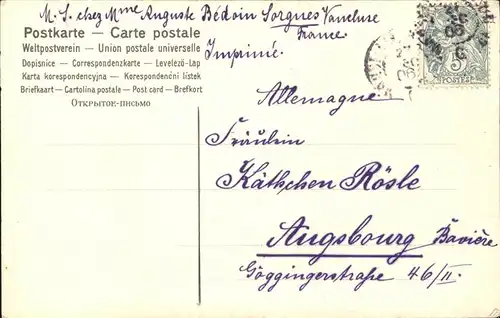 M. S. chez Mme Auguste Bédoin Sorgues Vaucluse
France
Imprimé.
Postkarte — Carte postale
Weltpostverein — Union postale universelle
Dopisnice — Correspondenzkarte — Levelezö-Lap
Karta korespondencyjna — Korespondenční listek
Briefkaart — Cartolina postale — Post card — Brefkort
Открытое-письмо
Allemagne
Fräulein
Käthchen Rösle
Augsbourg Bavière
Göggingerstraße 46/II.
5
POSTES